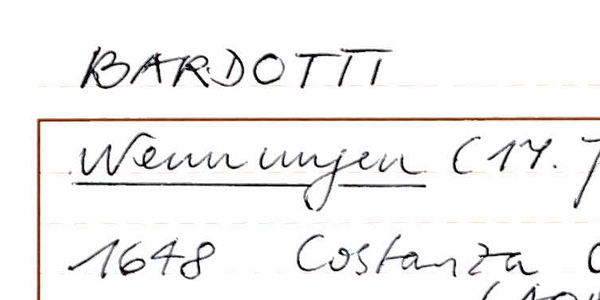 BARDOTTI
Wennungen (17. J
1648 Costanza